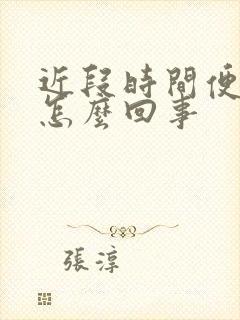 近段時間便
怎麼回事
張淳